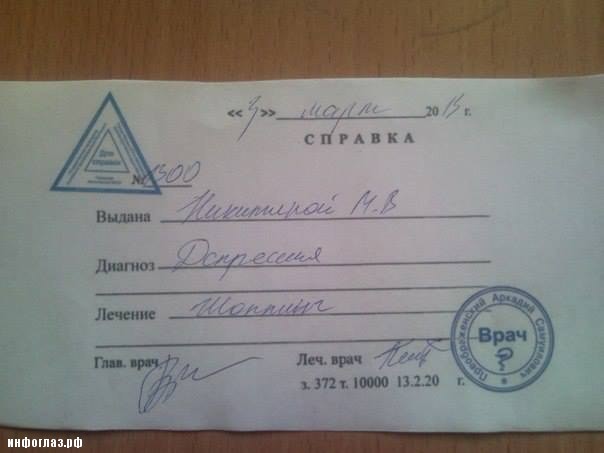 «3» март 2013 г.
СПРАВКА
Для справок
№ 1300
Выдана Никитиной М.В
Диагноз Депрессия
Лечение Шоппинг
Глав. врач Леч. врач
з. 372 т. 10000 13.2.20 г.
Преображенский Аркадий Самуилович
Врач
инфоглаз.рф